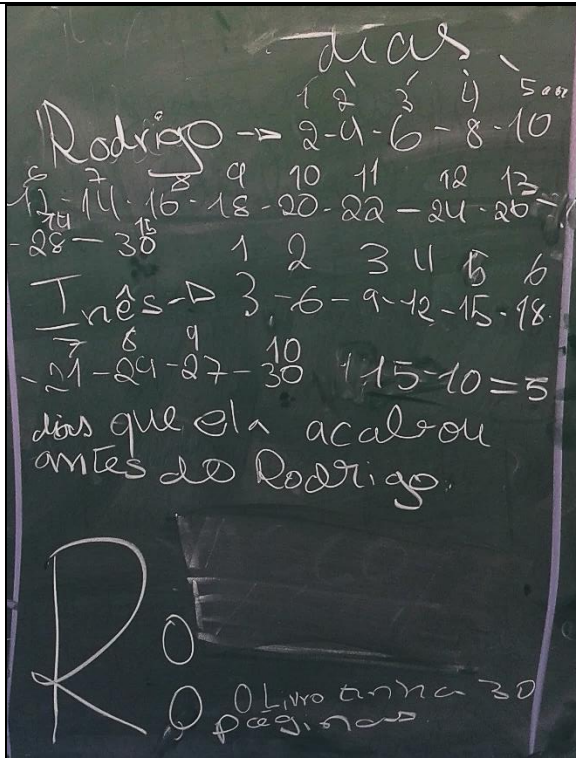 dias
1 2 3 4 5
Rodrigo → 2-4-6-8-10
6 7 8 9 10 11 12 13
12-14-16-18-20-22-24-26-
14 15
-28-30
1 2 3 4 5 6
Inês → 3-6-9-12-15-18
7 8 9 10
-21-24-27-30 15-10=5
dias que ela acabou
antes do Rodrigo.
R:
O Livro tinha 30
páginas.